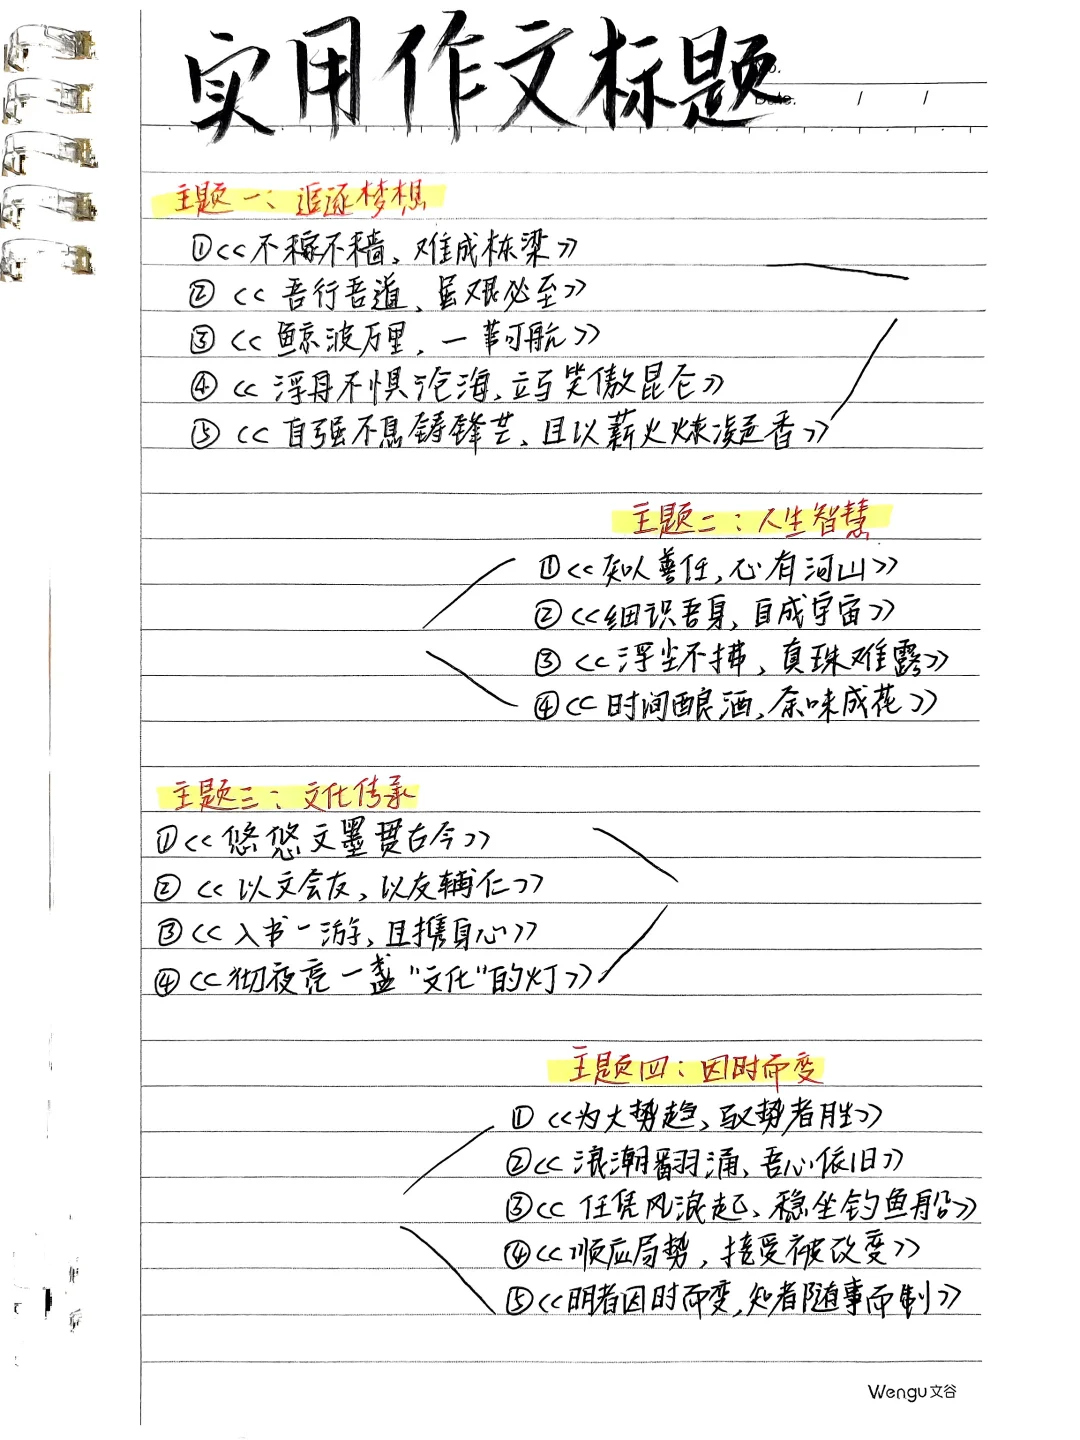 实用作文标题
No.
Date. / /
主题一：追逐梦想
①<<不稼不穑，难成栋梁>>
②<<吾行吾道，虽艰必至>>
③<<鲸波万里，一苇可航>>
④<<浮舟不惧沧海，立马笑傲昆仑>>
⑤<<自强不息铸锋芒，且以薪火炼凝香>>
主题二：人生智慧
①<<知人善任，心有河山>>
②<<细识吾身，自成宇宙>>
③<<浮尘不拂，真珠难露>>
④<<时间酿酒，余味成花>>
主题三：文化传承
①<<悠悠文墨贯古今>>
②<<以文会友，以友辅仁>>
③<<入书一游，且携身心>>
④<<彻夜亮一盏"文化"的灯>>
主题四：因时而变
①<<为大势趋，驭势者胜>>
②<<浪潮翻涌，吾心依旧>>
③<<任凭风浪起，稳坐钓鱼船>>
④<<顺应局势，接受被改变>>
⑤<<明者因时而变，知者随事而制>>
Wengu 文谷